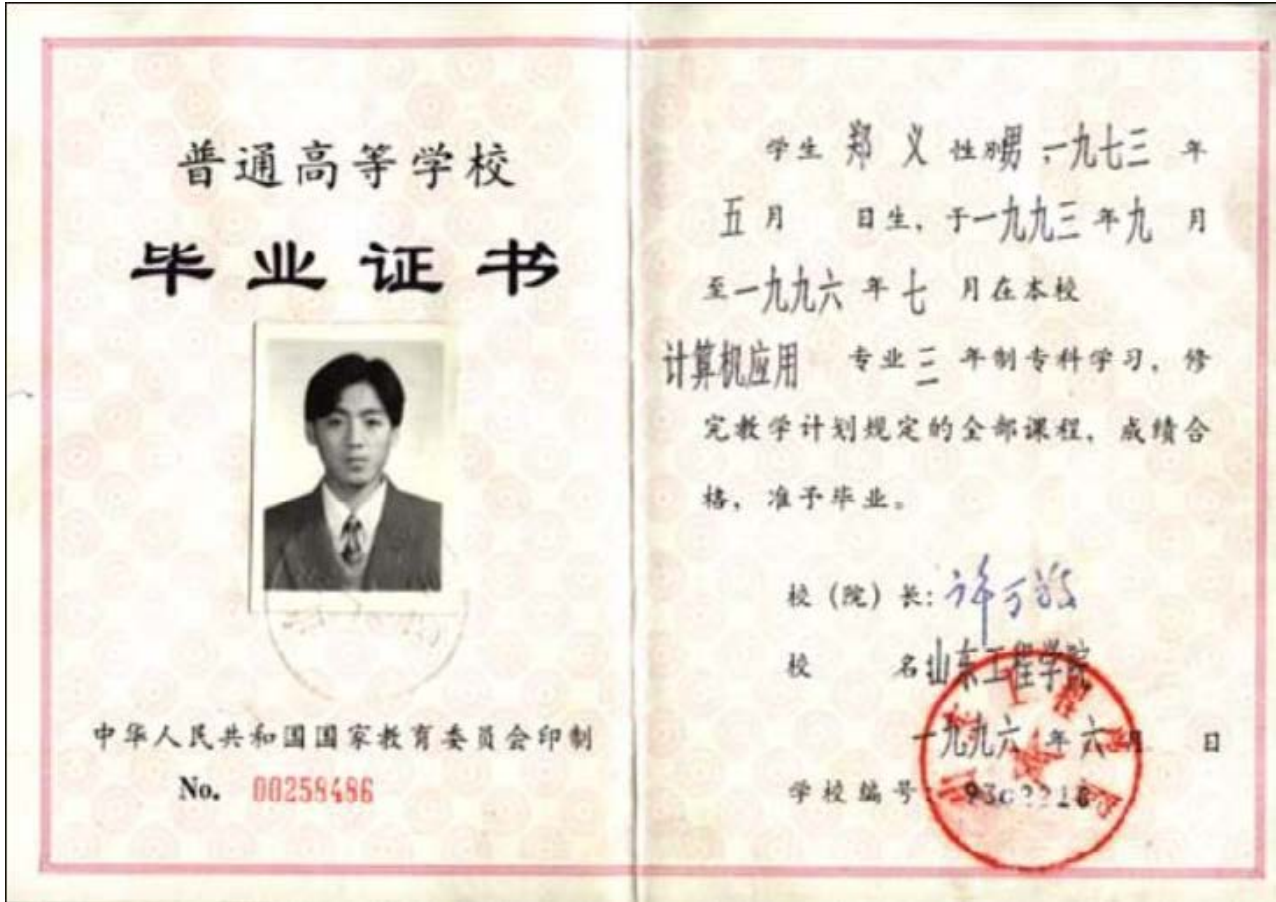 普通高等学校
毕业证书
中华人民共和国国家教育委员会印制
No. 00258486
学生 郑义 性别男,一九七三 年
五月 日生,于一九九三年九月
至一九九六年七月在本校
计算机应用 专业三年制专科学习,修
完教学计划规定的全部课程,成绩合
格,准予毕业。
校(院)长:
校 名山东工程学院
一九九六年六月 日
学校编号